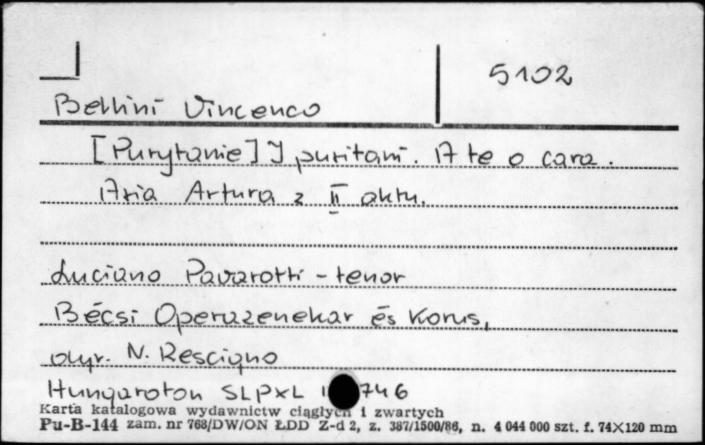 5102
Bellini Vincenco
[Purytanie] I puritani. A te o cara.
Aria Artura z II aktu.
Luciano Pavarotti - tenor
Bécsi Operazenekar és Korus,
dyr. N. Rescigno
Hungaroton SLPXL 746
Karta katalogowa wydawnictw ciągłych i zwartych
Pu-B-144 zam. nr 768/DW/ON ŁDD Z-d 2, z. 387/1500/86, n. 4 044 000 szt. f. 74×120 mm